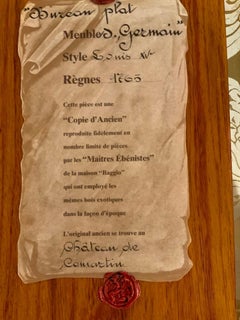 "Bureau plat
Meuble S. Germain"
Style Louis XV
Règnes 1765
Cette pièce est une
"Copie d'Ancien"
reproduite fidèlement en
nombre limité de pièces
par les "Maîtres Ébénistes"
de la maison "Baggio"
qui ont employé les
mêmes bois exotiques
dans la façon d'époque
L'original ancien se trouve au
Château de
Comartin